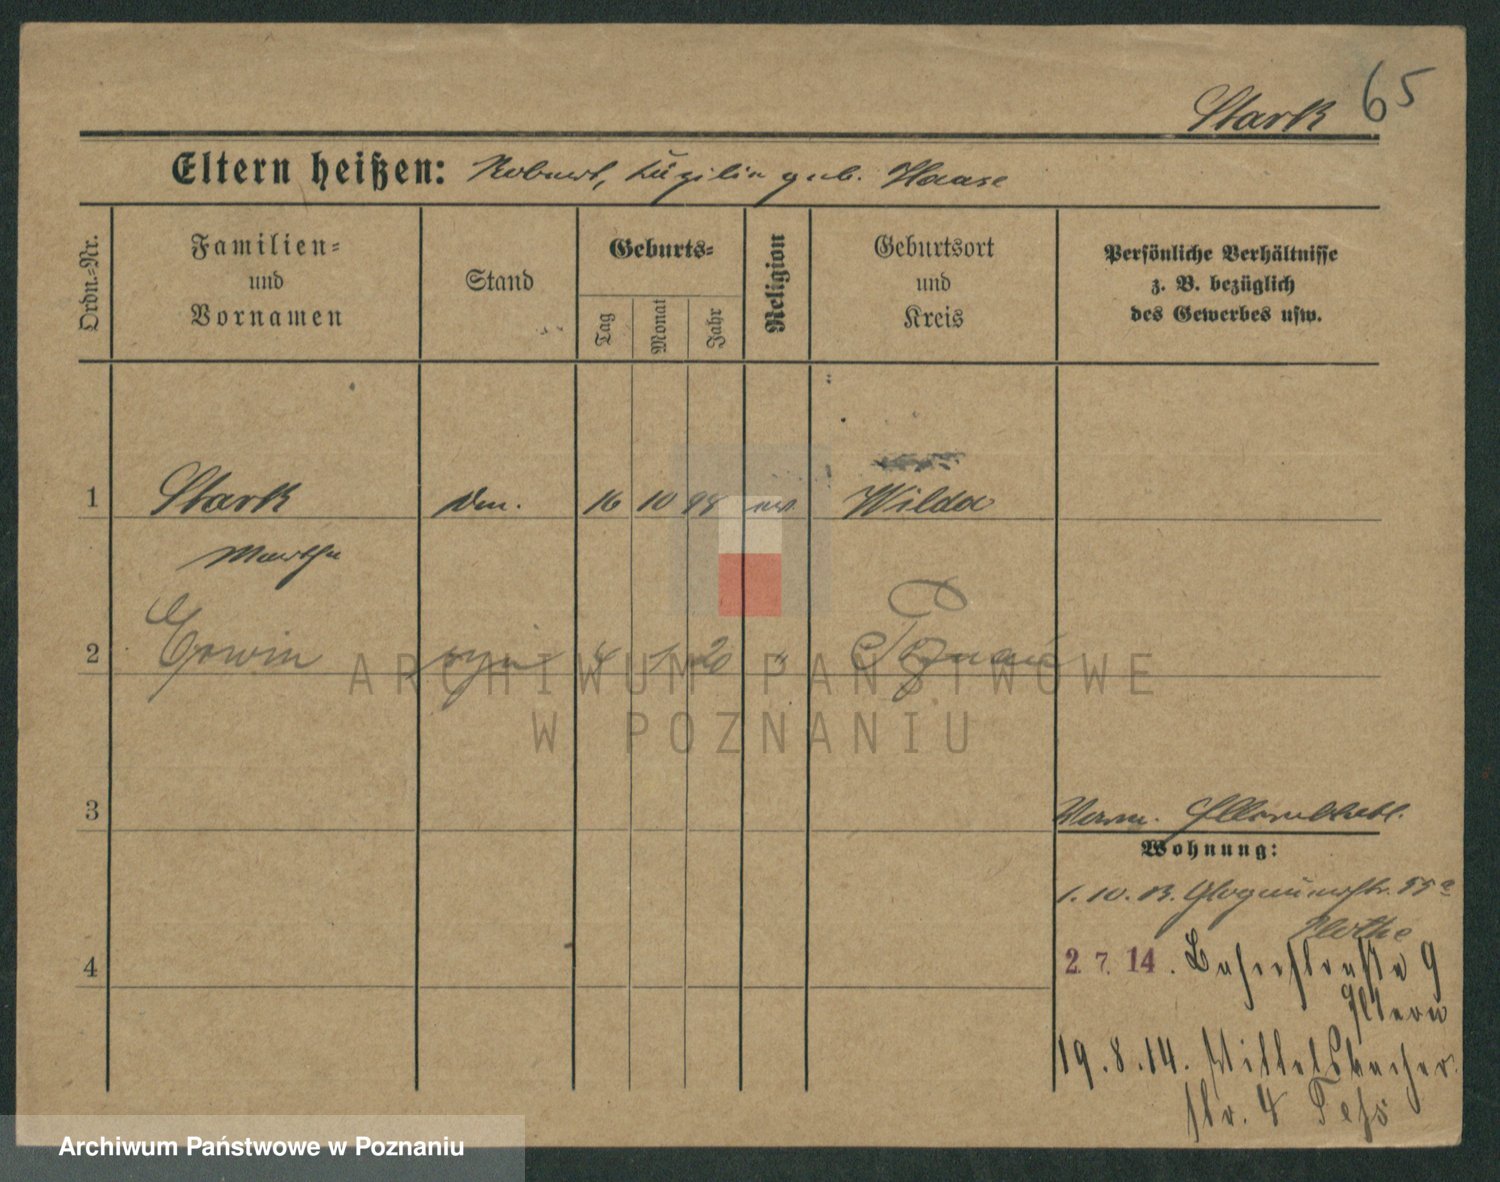 65
Stark
Eltern heißen: Robert, geb. Haase
Ordn.-Nr.
Familien-
und
Vornamen
Stand
Geburts-
Tag
Monat
Jahr
Religion
Geburtsort
und
Kreis
Persönliche Verhältnisse
z. B. bezüglich
des Gewerbes usw.
1 Stark 16 10 98 ev. Wilda
Martha
2 Erwin syn 4 1 20 " Poznań
3
Wohnung:
1. 10. 13. Glogauerstr. 55a
4
2. 7. 14. 9
Eltern
19. 8. 14. Wittelsbacher
str. 4
ARCHIWUM PAŃSTWOWE
W POZNANIU
Archiwum Państwowe w Poznaniu